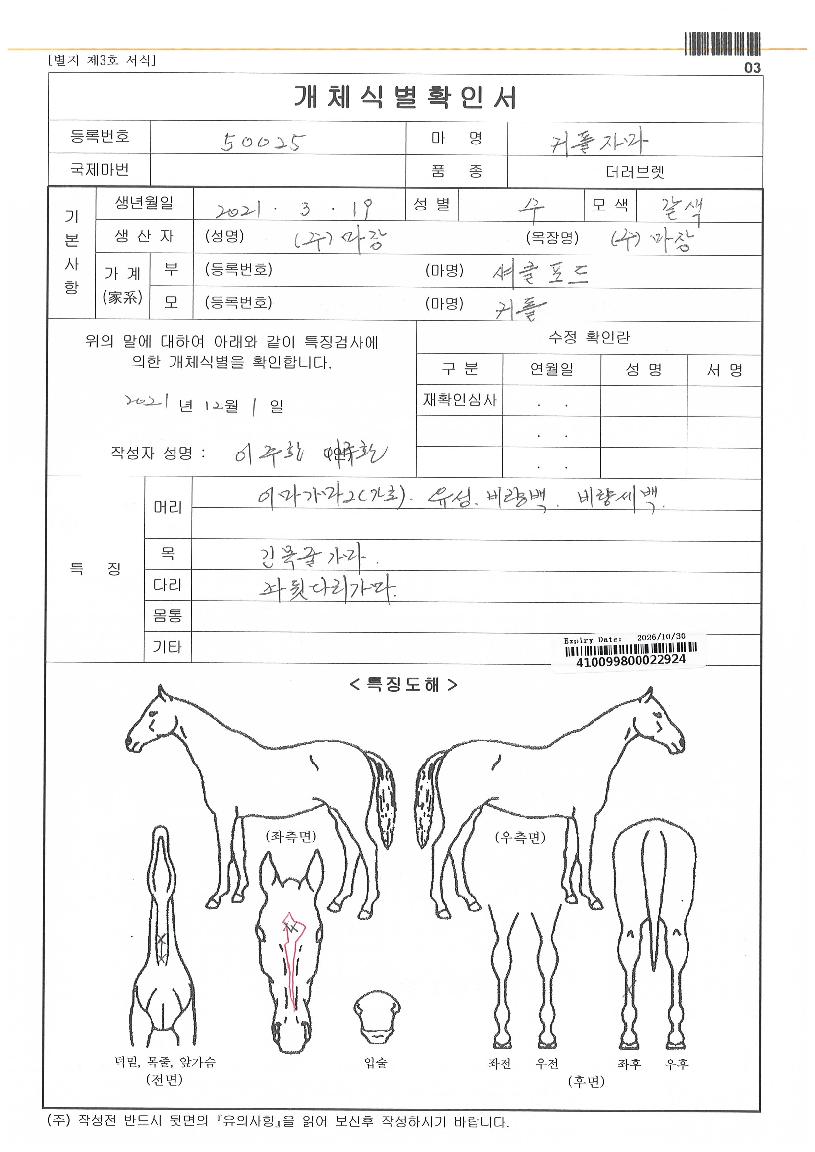 [별지 제3호 서식]
03
개체식별확인서
등록번호 50025 마 명 커플자마
국제마번 품 종 더러브렛
기본사항
생년월일 2021 . 3 . 19 성 별 수 모 색 갈색
생 산 자 (성명) (주)마장 (목장명) (주)마장
가 계 (家系) 부 (등록번호) (마명) 섀클포드
모 (등록번호) (마명) 커플
위의 말에 대하여 아래와 같이 특징검사에
의한 개체식별을 확인합니다.
2021 년 12월 1 일
작성자 성명 : 이주환 (인)
수정 확인란
구 분 연월일 성 명 서 명
재확인심사 . .
. .
. .
특 징
머리 이마가마2(가로). 유성. 비량백. 비량세백.
목 긴목줄가마.
다리 좌뒷다리가마.
몸통
기타
Expiry Date: 2026/10/30
410099800022924
< 특징도해 >
(좌측면) (우측면)
턱밑, 목줄, 앞가슴
(전면)
입술
좌전 우전 좌후 우후
(후면)
(주) 작성전 반드시 뒷면의 『유의사항』을 읽어 보신후 작성하시기 바랍니다.